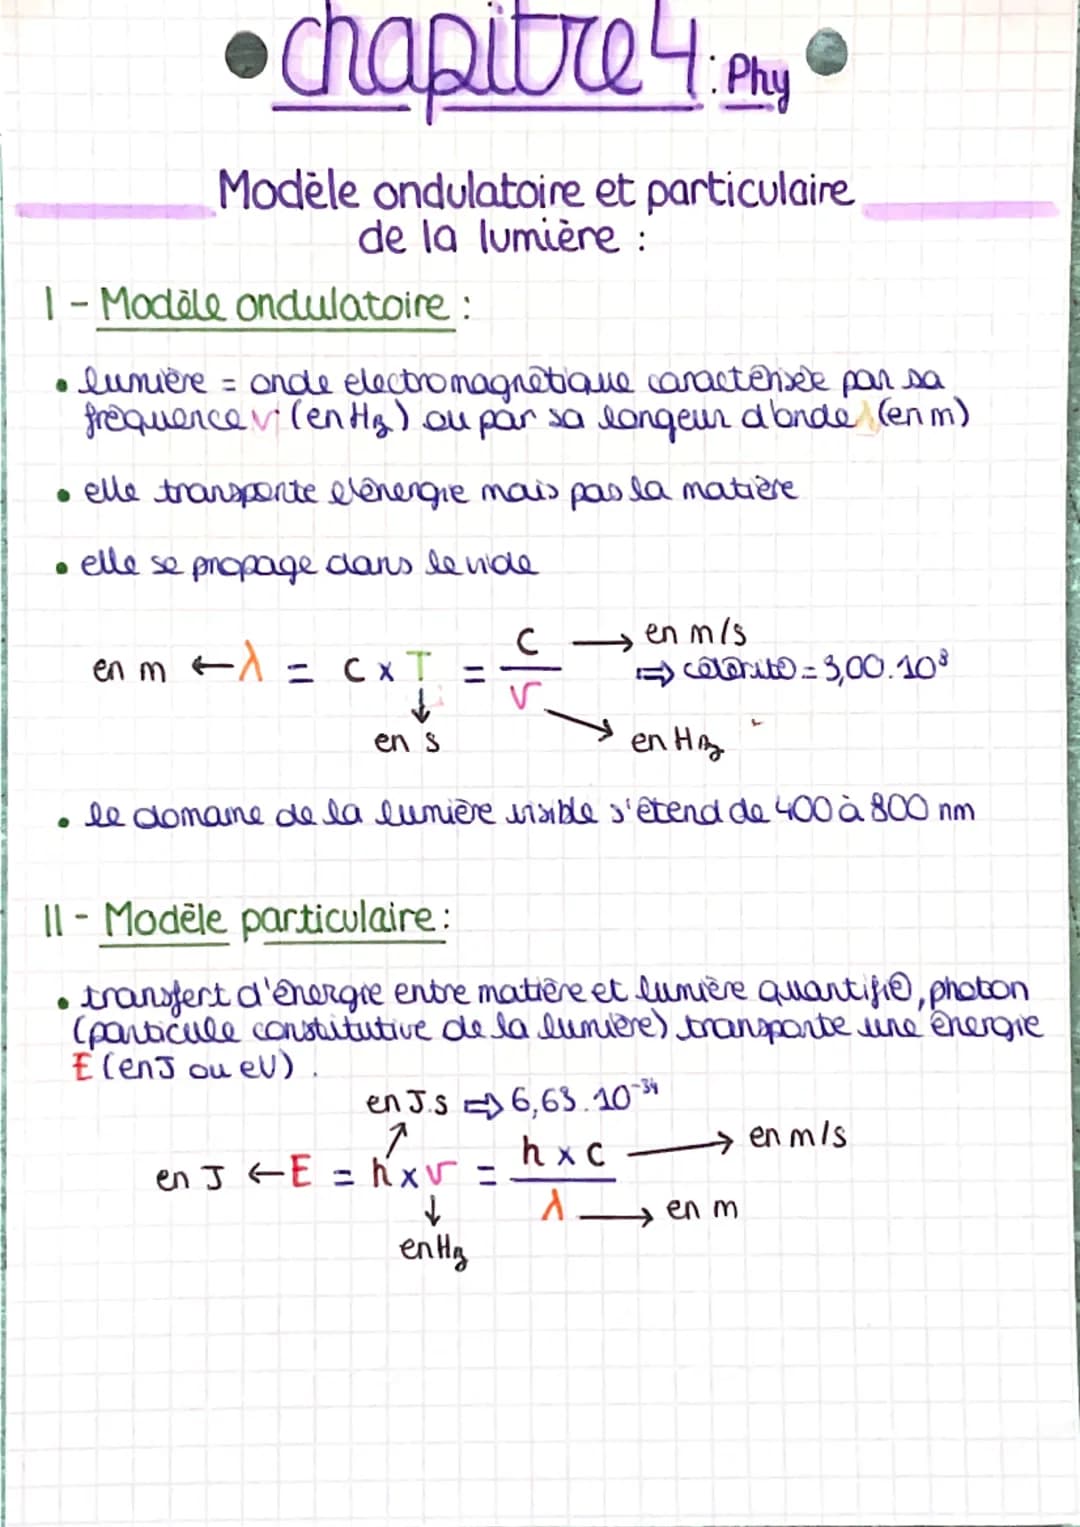 chapitre 4 : Phy
Modèle ondulatoire et particulaire
de la lumière :
I - Modèle ondulatoire :
• lumière = onde électromagnétique caractérisée par sa
fréquence ν (en Hz) ou par sa longeur d'onde λ (en m)
• elle transporte l'énergie mais pas la matière
• elle se propage dans le vide
en m ← λ = c x T = c / ν → en m/s
⇒ célérité = 3,00.10⁸
↓ en s
→ en Hz
• le domaine de la lumière visible s'étend de 400 à 800 nm
II - Modèle particulaire :
• transfert d'énergie entre matière et lumière quantifié, photon
(particule constitutive de la lumière) transporte une énergie
E (en J ou eV).
en J.s ⇒ 6,63.10⁻³⁴
en J ← E = h x ν = h x c / λ → en m/s
→ en m
↓ en Hz